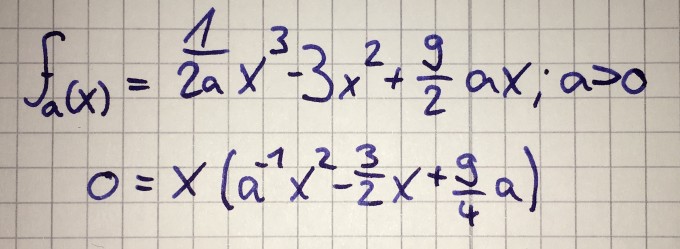 fₐ(x) = 1/2a x³ - 3x² + 9/2 ax; a>0
0 = x (a⁻¹x² - 3/2 x + 9/4 a)